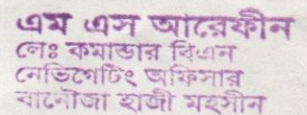 এম এস আরেফীন
লেঃ কমান্ডার বিএন
নেভিগেটিং অফিসার
বানৌজা হাজী মহসীন